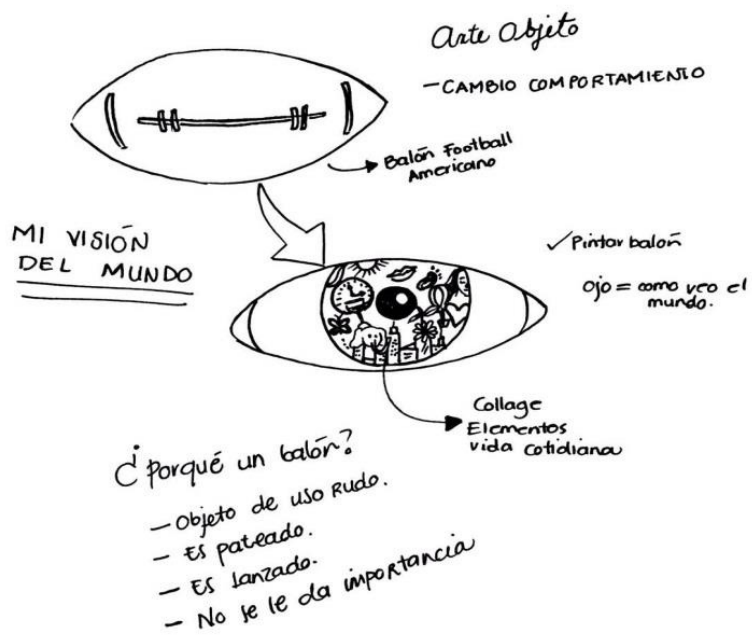 Arte Objeto
- CAMBIO COMPORTAMIENTO
Balón Football
Americano
MI VISIÓN
DEL MUNDO
✓ Pintar balón
Ojo = como veo el
mundo.
Collage
Elementos
vida cotidiana
¿Porqué un balón?
- Objeto de uso Rudo.
- Es pateado.
- Es lanzado.
- No se le da importancia